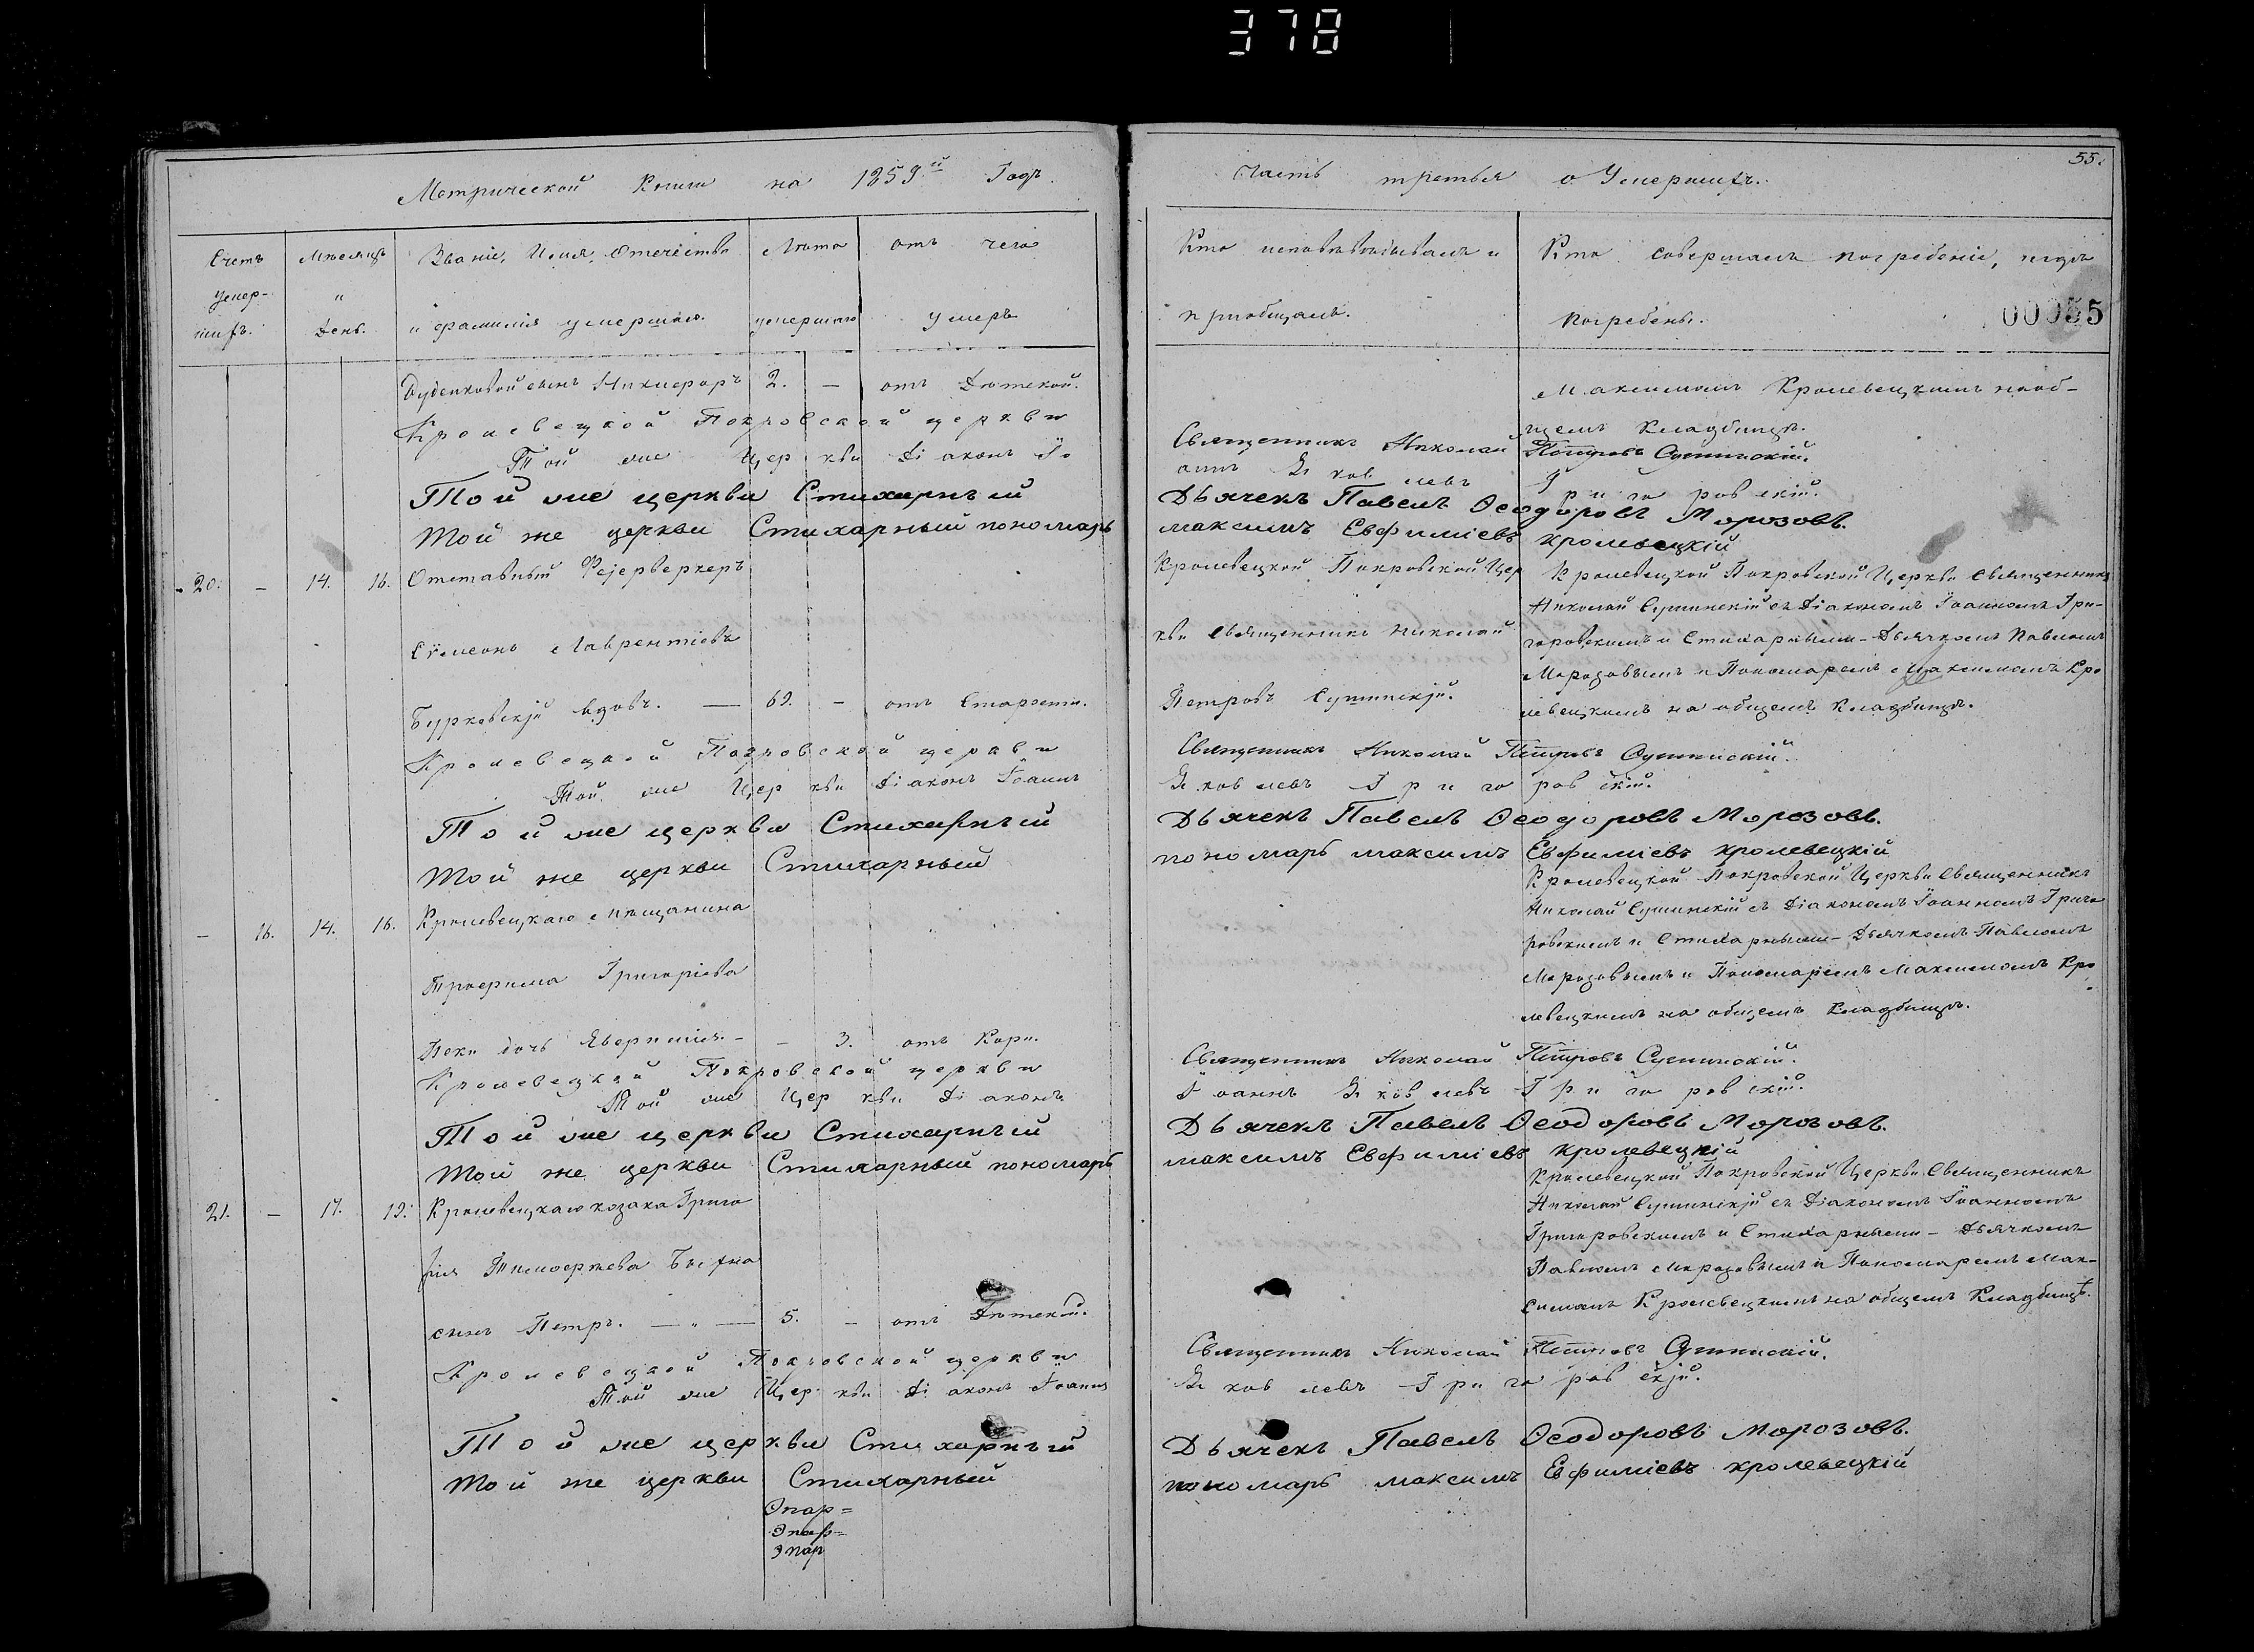 378
Метрической Книги на 1859й Годъ
Счетъ умер-шихъ.
Мѣсяцъ и День.
Званіе, Имя, Отечество и фамилія умершаго.
Лѣта умершаго
отъ чего умеръ
Дуденковой сынъ Никифоръ 2. — отъ Дѣтской.
Кролевецкой Покровской церкви
Той же Церкви Діаконъ Іо
Той же церкви Стихарный
той же церкви Стихарный пономарь
20. — 14. 16. Отставный Фейерверкеръ
Сѵмеонъ Лаврентіевъ
Бурковскій вдовъ. — 69. — отъ Старости.
Кролевецкой Покровской церкви
Той же Церкви Діаконъ Іоаннъ
Той же церкви Стихарный
той же церкви Стихарный
— 16. 14. 16. Кролевецкаго мѣщанина
Трофима Григоріева
дочь — — 3. отъ Кори.
Кролевецкой Покровской церкви
Той же Церкви Діаконъ
Той же церкви Стихарный
той же церкви Стихарный пономарь
21. — 17. 19. Кролевецкаго козака Григо
рія Тимофеева
сынъ Петръ. — „ — 5. — отъ Дѣтской.
Кролевецкой Покровской церкви
Той же Церкви Діаконъ Іоаннъ
Той же церкви Стихарный
той же церкви Стихарный
55.
Часть третья о Умершихъ.
Кто исповѣдывалъ и пріобщалъ.
Кто совершалъ погребеніе, и гдѣ погребены.
00055
Максимомъ Кролевецкимъ на об-
щемъ Кладбищѣ.
Священникъ Николай Петровъ Сушинскій.
аннъ Яковлевъ Григоровскій.
Дьячекъ Павелъ Ѳеодоровъ Морозовъ.
максимъ Евфиміевъ кролевецкій
Кролевецкой Покровской Цер
кви Священникъ Николай
Петровъ Сушинскій.
Кролевецкой Покровской Церкви Священникъ
Николай Сушинскій съ Діакономъ Іоанномъ Гри-
горовскимъ и Стихарными — Дьячкомъ Павломъ
Морозовымъ и Пономаремъ Максимомъ Кро
левецкимъ на общемъ Кладбищѣ.
Священникъ Николай Петровъ Сушинскій.
Яковлевъ Григоровскій.
Дьячекъ Павелъ Ѳеодоровъ Морозовъ.
пономарь максимъ Евфиміевъ кролевецкій
Кролевецкой Покровской Церкви Священникъ
Николай Сушинскій съ Діакономъ Іоанномъ Григо
ровскимъ и Стихарными — Дьячкомъ Павломъ
Морозовымъ и Пономаремъ Максимомъ Кро
левецкимъ на общемъ Кладбищѣ.
Священникъ Николай Петровъ Сушинскій.
Іоаннъ Яковлевъ Григоровскій.
Дьячекъ Павелъ Ѳеодоровъ Морозовъ.
максимъ Евфиміевъ кролевецкій
Кролевецкой Покровской Церкви Священникъ
Николай Сушинскій съ Діакономъ Іоанномъ
Григоровскимъ и Стихарными — Дьячкомъ
Павломъ Морозовымъ и Пономаремъ Мак-
симомъ Кролевецкимъ на общемъ Кладбищѣ.
Священникъ Николай Петровъ Сушинскій.
Яковлевъ Григоровскій.
Дьячекъ Павелъ Ѳеодоровъ Морозовъ.
пономарь максимъ Евфиміевъ кролевецкій